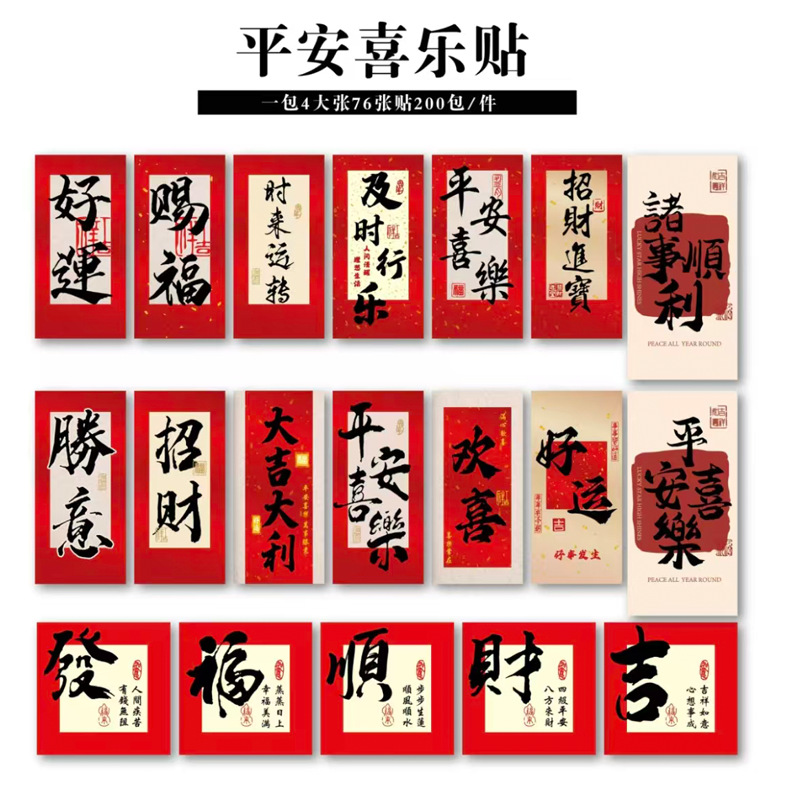 平安喜乐贴
一包4大张76张贴200包/件
好運
赐福
时来运转
及时行乐
人间清醒
理想生活
平安喜樂
招財進寶
諸事順利
LUCKY STAR HIGH SHINES
PEACE ALL YEAR ROUND
勝意
招财
大吉大利
平安喜樂
欢喜
好运
好事发生
平安喜樂
LUCKY STAR HIGH SHINES
PEACE ALL YEAR ROUND
發
人間疾苦
有錢無阻
福
蒸蒸日上
幸福美满
順
步步生蓮
順風順水
財
四級平安
八方来财
吉
吉祥如意
心想事成